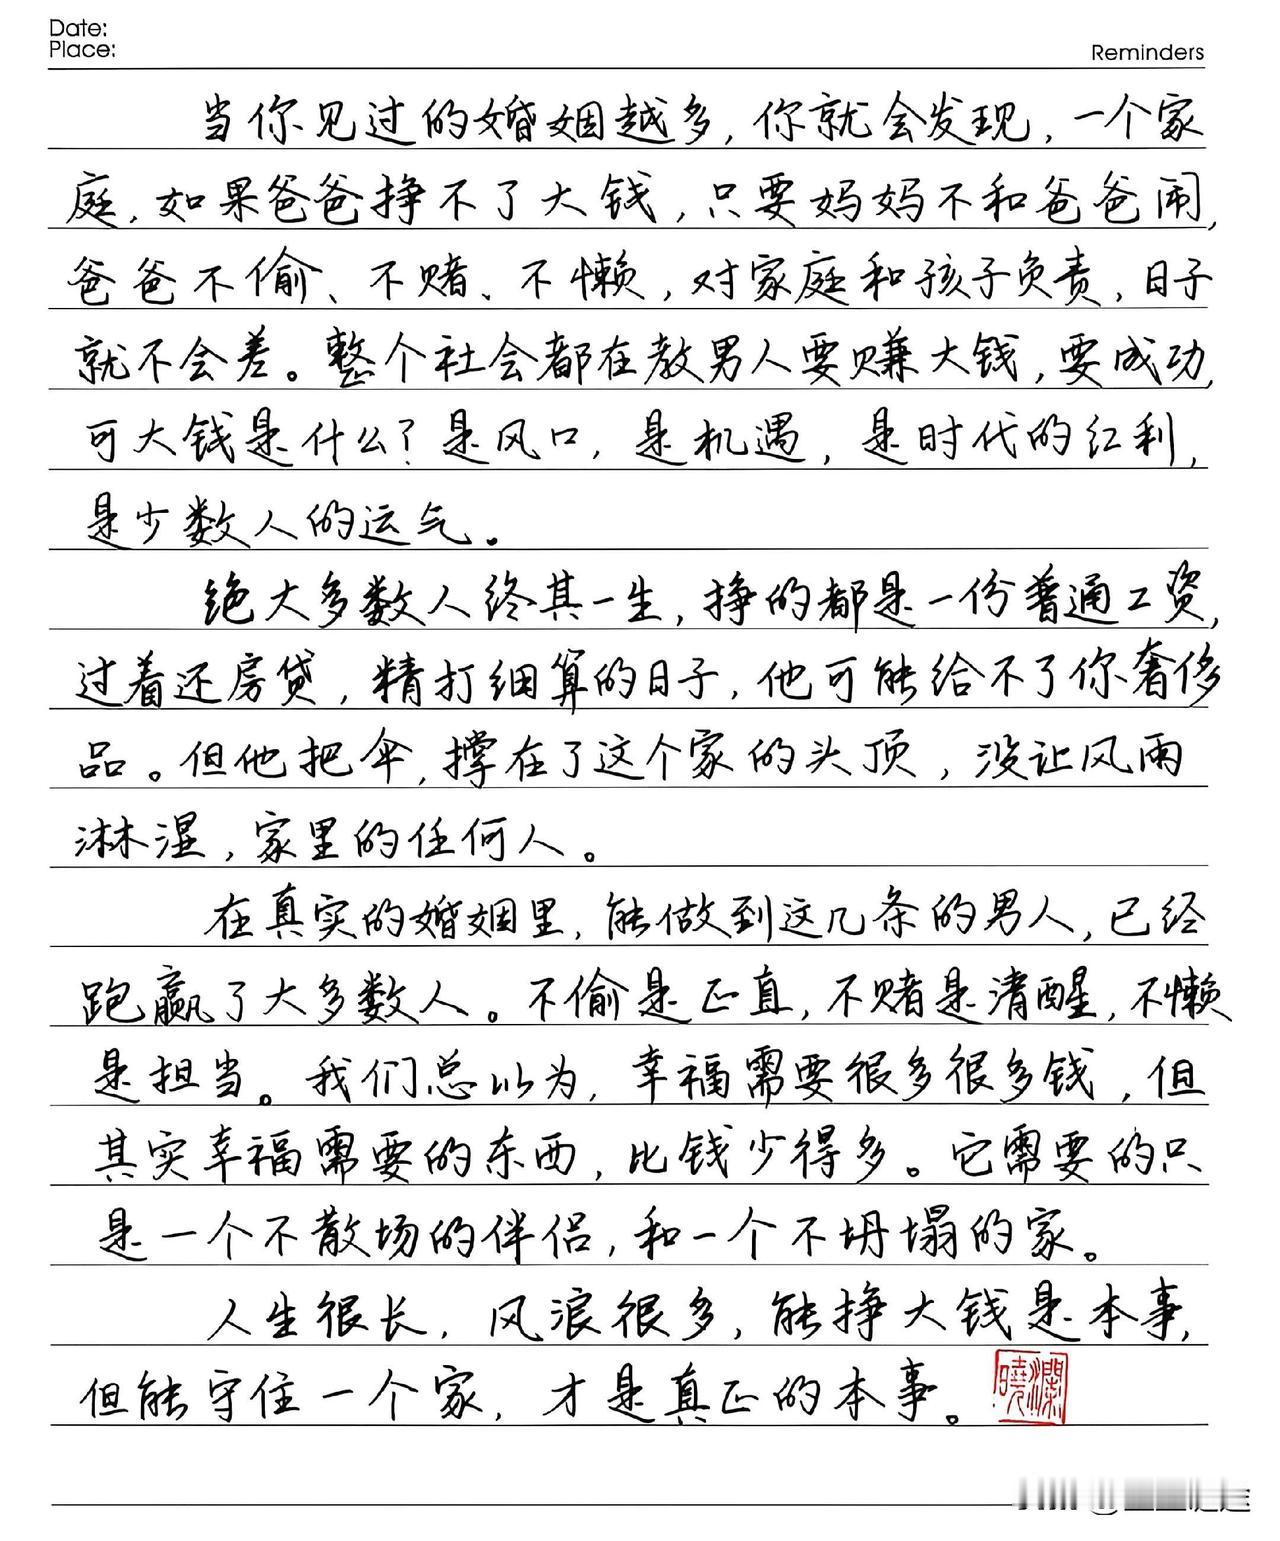 Date:
Place:
Reminders
当你见过的婚姻越多,你就会发现,一个家
庭,如果爸爸挣不了大钱,只要妈妈不和爸爸闹,
爸爸不偷、不赌、不懒,对家庭和孩子负责,日子
就不会差。整个社会都在教男人要赚大钱,要成功,
可大钱是什么?是风口,是机遇,是时代的红利,
是少数人的运气。
绝大多数人终其一生,挣的都是一份普通工资,
过着还房贷,精打细算的日子,他可能给不了你奢侈
品。但他把伞,撑在了这个家的头顶,没让风雨
淋湿,家里的任何人。
在真实的婚姻里,能做到这几条的男人,已经
跑赢了大多数人。不偷是正直,不赌是清醒,不懒
是担当。我们总以为,幸福需要很多很多钱,但
其实幸福需要的东西,比钱少得多。它需要的只
是一个不散场的伴侣,和一个不坍塌的家。
人生很长,风浪很多,能挣大钱是本事,
但能守住一个家,才是真正的本事。